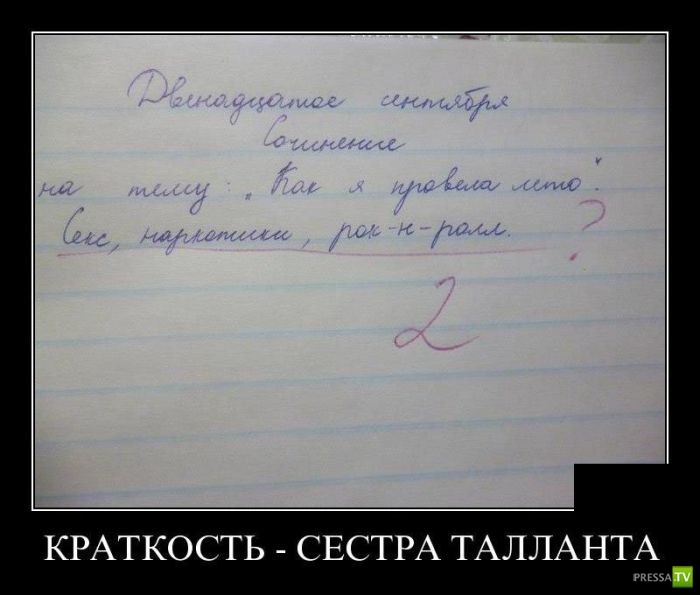 Двенадцатое сентября
Сочинение
на тему: „Как я провела лето".
Секс, наркотики, рок-н-ролл. ?
2
КРАТКОСТЬ - СЕСТРА ТАЛЛАНТА
PRESSA.TV